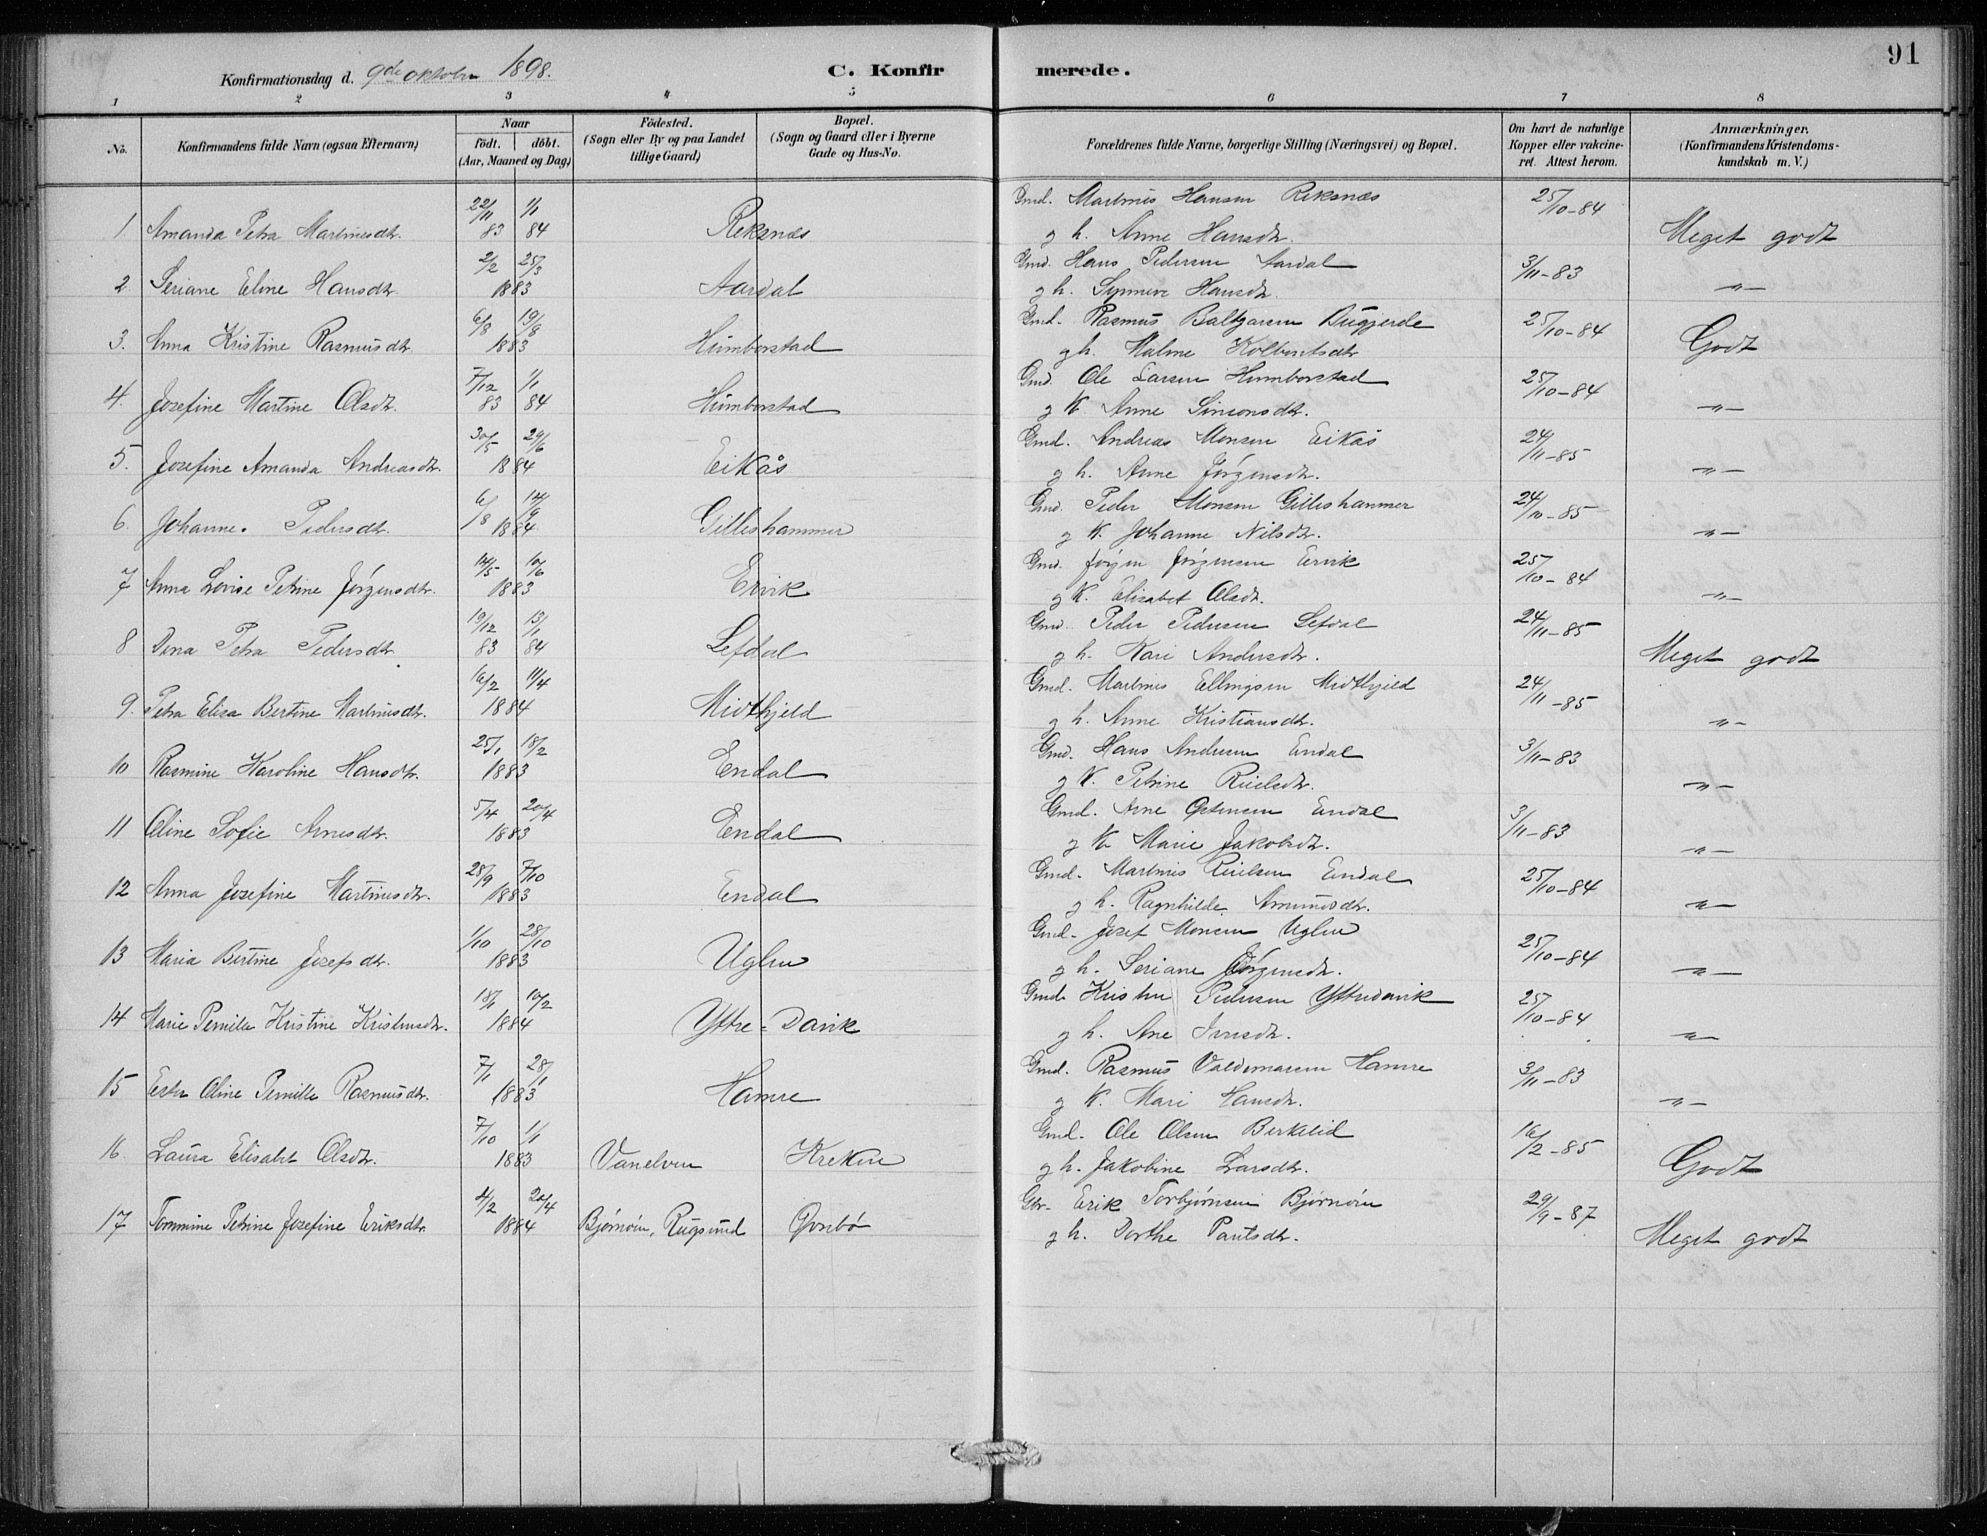 91
Konfirmationsdag d. 9de oktober 1898. C. Konfirmerede.
1 2 3 4 5 6 7 8
No. Konfirmandens fulde Navn (ogsaa Efternavn) Naar født. døbt. (Aar, Maaned og Dag) Födested. (Sogn eller By og paa Landet tillige Gaard) Bopæl. (Sogn og Gaard eller i Byerne Gade og Hus-No. Forældrenes fulde Navne, borgerlige Stilling (Næringsvei) og Bopæl. Om havt de naturlige Kopper eller vakcineret. Attest herom. Anmærkninger. (Konfirmandens Kristendomskundskab m. V.)
1. Amanda Petra Martinusdtr. 22/11 83 1/1 84 Reksnæs Gmd. Martinus Hansen Reksnæs 25/10-84 Meget godt
g h. Anne Hansdtr.
2. Seriane Eline Hansdtr. 2/2 25/3 1883 Aardal Gmd. Hans Pedersen Aardal 3/11-83 -"-
g h. Synneve Hansdtr.
3. Anna Kristine Rasmusdtr. 6/8 19/8 1883 Humborstad Gmd. Rasmus Baltzarsen Bugjerde 25/10-84 Godt
g h. Malene Kolbentsdtr
4. Josefine Martine Olsdtr. 7/12 83 1/1 84 Humborstad Gmd. Ole Larsen Humborstad 25/10-84 -"-
g K. Anne Simonsdtr.
5. Josefine Amanda Andreasdtr. 30/5 29/6 1884 Eikås Gmd. Andreas Monsen Eikås 24/11-85 -"-
g h. Anne Jørgensdtr.
6. Johanne. Pedersdtr. 6/8 14/9 1884. Gilleshammer Gmd. Peder Monsen Gilleshammer 24/10-85 -"-
g K. Johanne Nilsdtr.
7 Anna Lovise Petrine Jørgensdtr. 14/5 10/6 1883 Ervik Gmd. Jørgen Jørgensen Ervik 25/10-84 -"-
g K. Elisabet Olsdr.
8 Dena Petra Pedersdtr 19/12 83 13/1 84 Lefdal Gmd. Peder Pedersen Lefdal 24/11-85 Meget godt
g h. Kari Andersdtr.
9. Petra Elisa Bertine Martinusdtr. 16/2 11/4 1884 Midthjeld Gmd. Martinus Ellingsen Midthjeld 24/11-85 -"-
g h. Anne Kristiansdtr.
10 Rasmine Karoline Hansdtr. 25/1 18/2 1883 Endal Gmd. Hans Andersen Endal 3/11-83 -"-
g K. Petrine
11 Oline Sofie Arnesdtr. 5/4 20/4 1883 Endal Gmd. Arne Endal 3/11-83 -"-
g K Marie Jakobsdtr.
12 Anna Josefine Martinusdtr. 28/9 7/10 1883 Endal Gmd. Martinus Endal 25/10-84 -"-
g h. Ragnhilde Amundsdtr.
13 Maria Bertine Josefsdtr. 1/10 28/10 1883 Uglen Gmd. Josef Monsen Uglen 25/10-84 -"-
g h. Seriane Jørgensdtr.
14 Marie Pernille Kristine Kristensdtr. 18/1 10/2 1884 Yttre-Davik Gmd. Kristen Pedersen Yttredavik 25/10-84 -"-
g h. Ane Iversdtr.
15 Ester Oline Pernille Rasmusdtr. 7/1 28/1 1883 Hamre Gmd. Rasmus Valdemarsen Hamre 3/11-83 -"-
g K. Mari Hansdtr.
16. Laura Elisabet Olsdtr. 7/10 1/1 1883 Vanelven Kreken Gmd. Ole Olsen Berklid 16/2-85 Godt
g h. Jakobine Larsdtr.
17 Tommine Petrine Josefine Eriksdtr. 4/2 20/4 1884 Bjørnøen, Rugsund Gbr. Erik Torbjørnsen Bjørnøen 29/9-87 Meget godt
g h. Dorthe